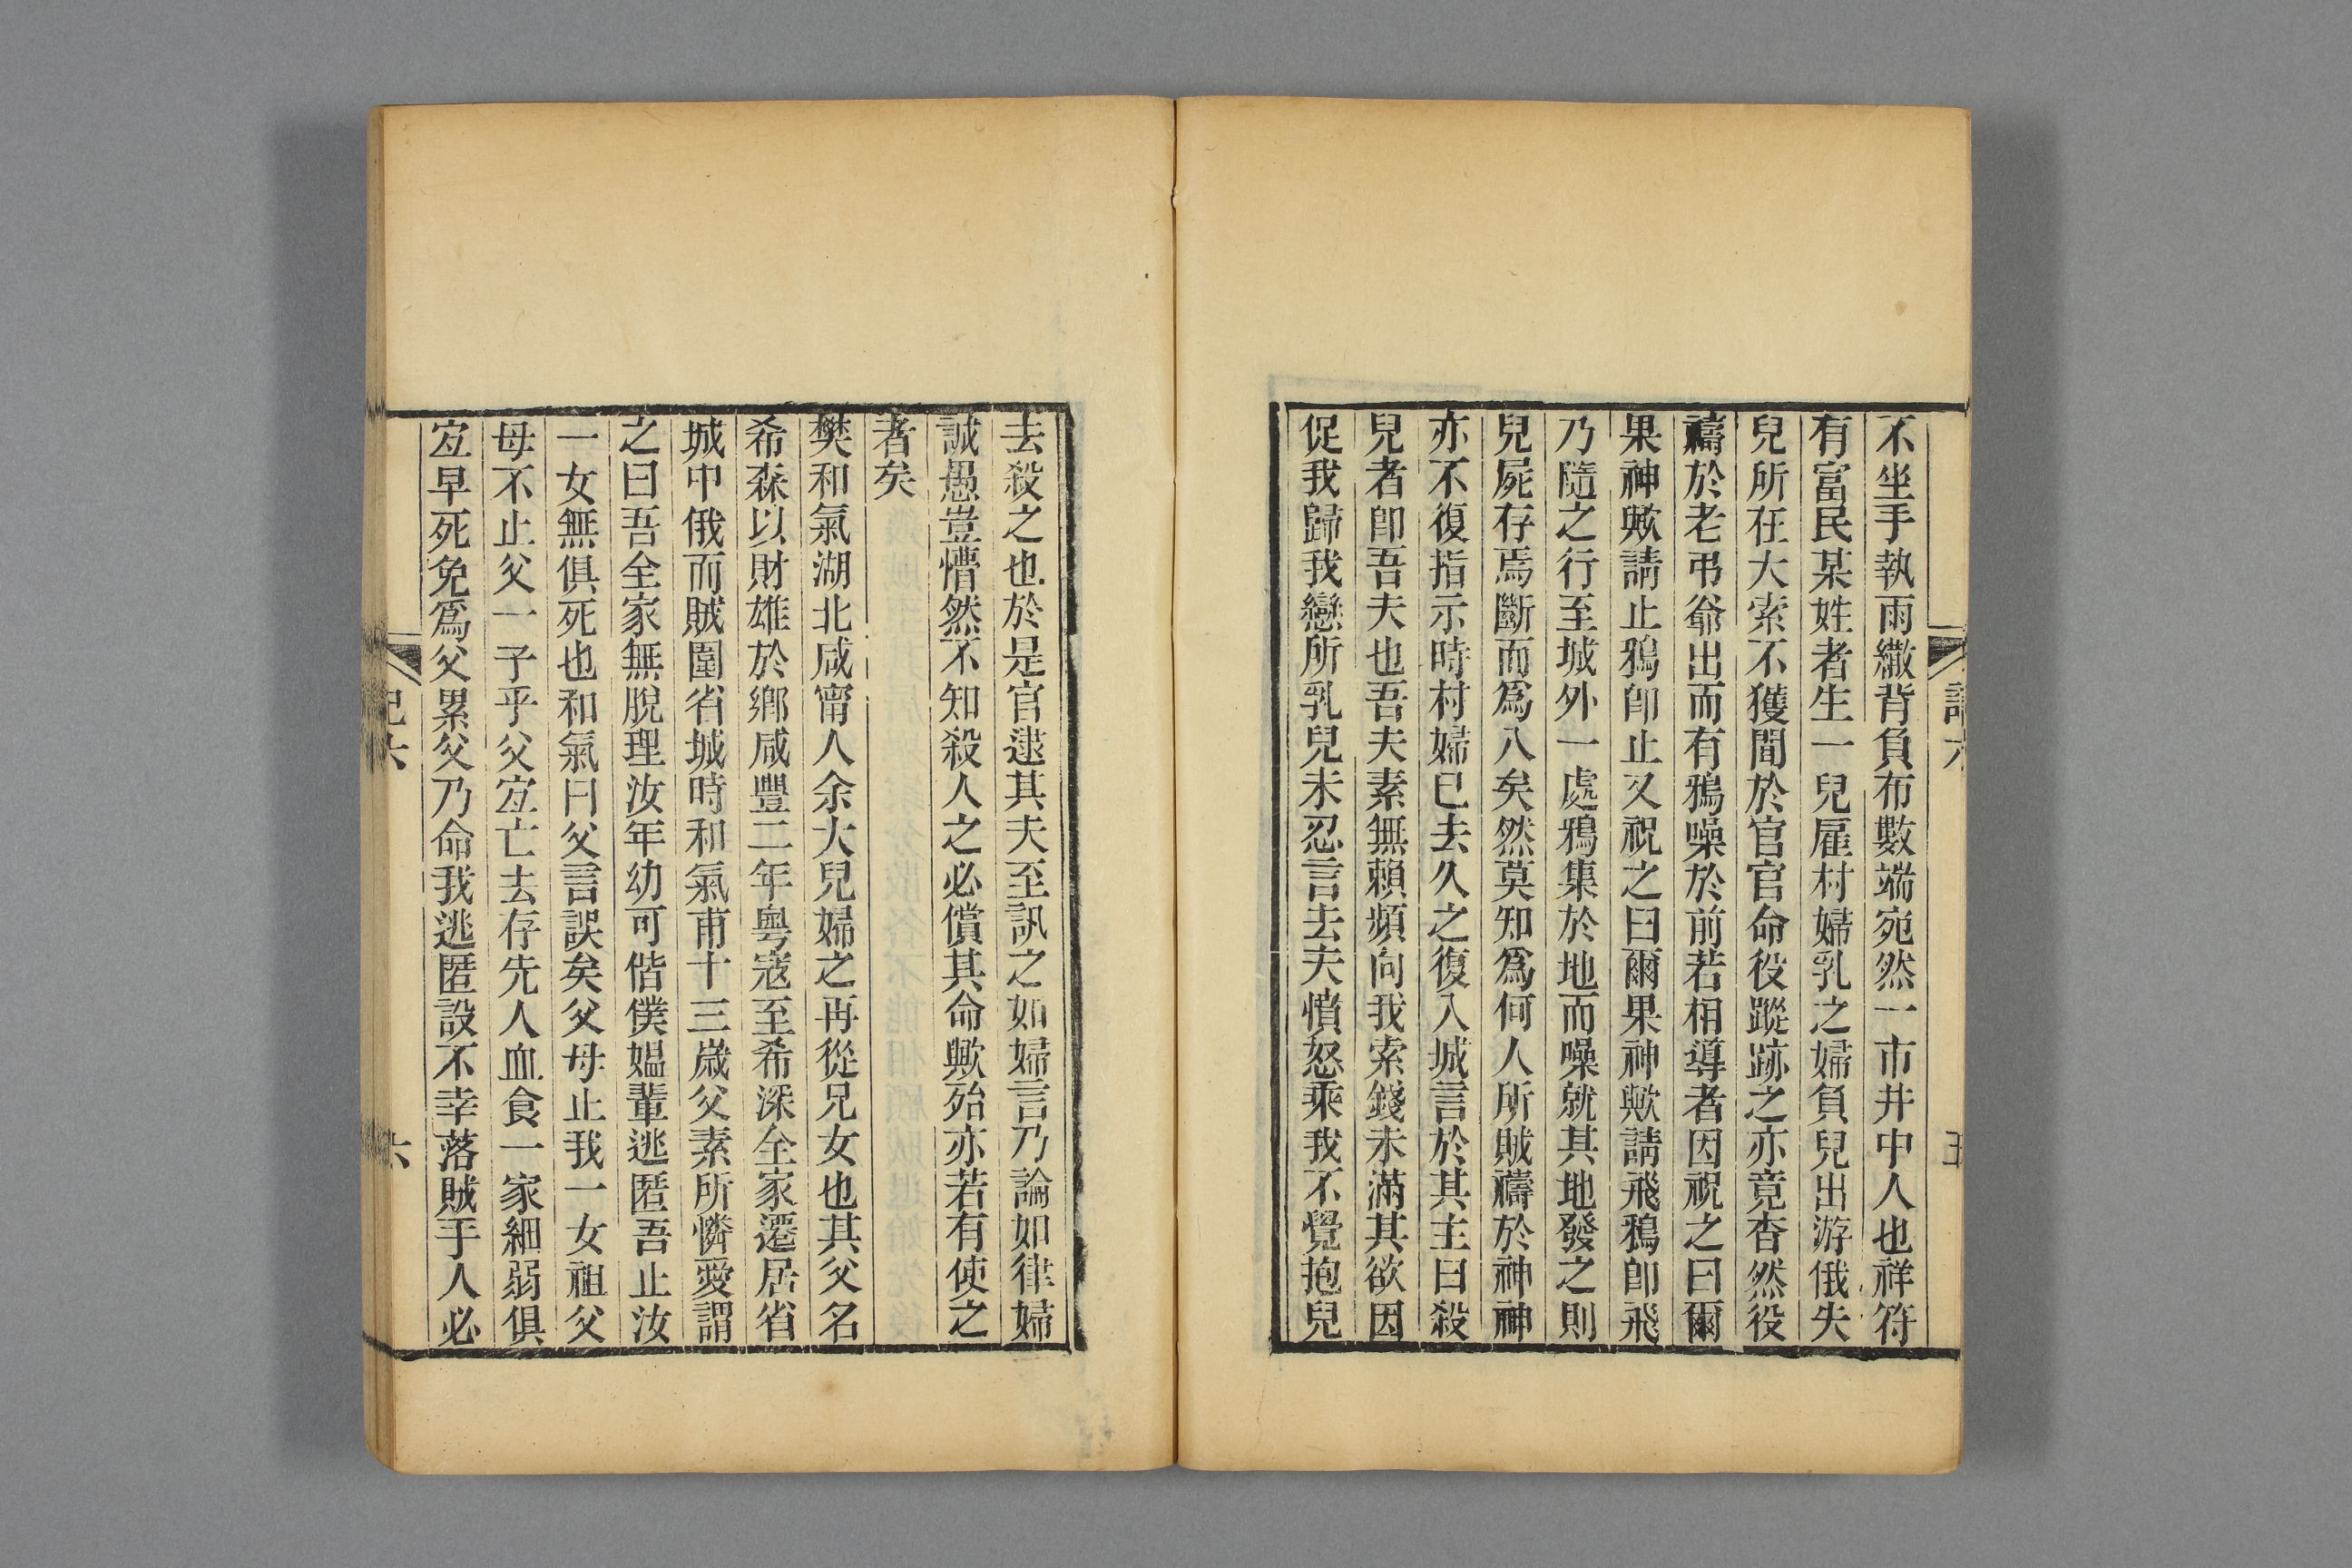 不坐手執雨繖背負布數端宛然一市井中人也祥符
有富民某姓者生一兒雇村婦乳之婦負兒出游俄失
兒所在大索不獲聞於官官命役蹤跡之亦竟杳然役
禱於老弔爺出而有鴉噪於前若相導者因祝之曰爾
果神歟請止鴉卽止又祝之曰爾果神歟請飛鴉卽飛
乃隨之行至城外一處鴉集於地而噪就其地發之則
兒屍存焉斷而爲八矣然莫知爲何人所賊禱於神神
亦不復指示時村婦已去久之復入城言於其主曰殺
兒者卽吾夫也吾夫素無賴頻向我索錢未滿其欲因
促我歸我戀所乳兒未忍言去夫憤怒乘我不覺抱兒
去殺之也於是官逮其夫至訊之如婦言乃論如律婦
誠愚豈懵然不知殺人之必償其命歟殆亦若有使之
者矣
樊和氣湖北咸甯人余大兒婦之再從兄女也其父名
希森以財雄於鄉咸豐二年粵寇至希深全家遷居省
城中俄而賊圍省城時和氣甫十三歲父素所憐愛謂
之曰吾全家無脫理汝年幼可偕僕媼輩逃匿吾止汝
一女無俱死也和氣曰父言誤矣父母止我一女祖父
母不止父一子乎父宐亡去存先人血食一家細弱俱
宐早死免爲父累父乃命我逃匿設不幸落賊手人必
六